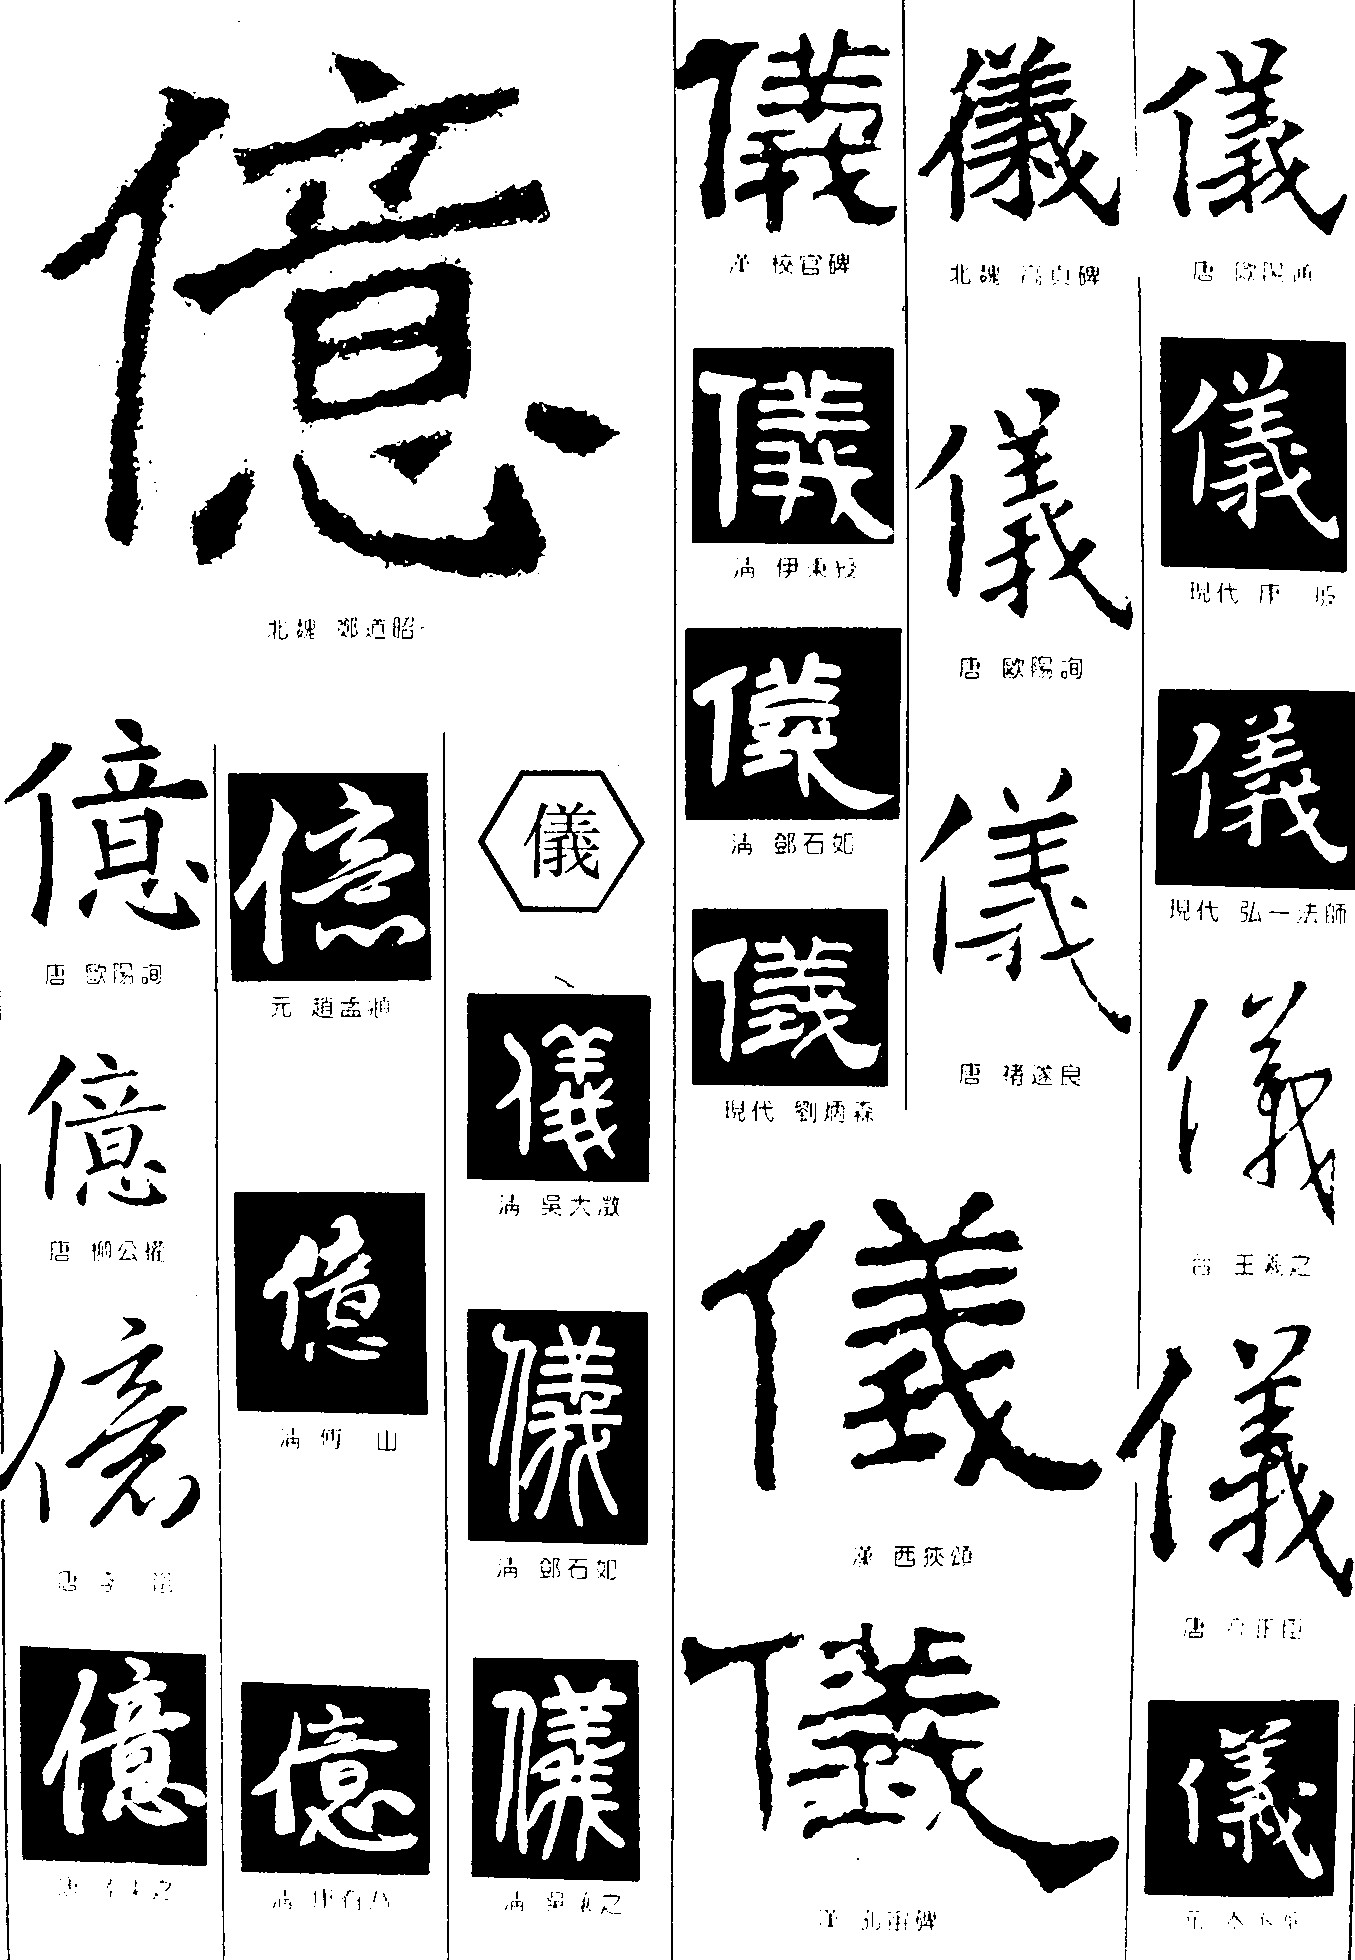 億
北魏 鄭道昭
億
唐 歐陽詢
億
唐 柳公權
億
唐
億
唐
億
元 趙孟頫
億
清 傅 山
億
清
儀
儀
清 吳大澂
儀
清 鄧石如
儀
清 吳
儀
漢 校官碑
儀
清 伊秉綬
儀
清 鄧石如
儀
現代 劉炳森
儀
漢 西狹頌
儀
漢 孔宙碑
儀
北魏 高貞碑
儀
唐 歐陽詢
儀
唐 褚遂良
儀
唐 歐陽通
儀
現代
儀
現代 弘一法師
儀
晉 王羲之
儀
唐
儀
元